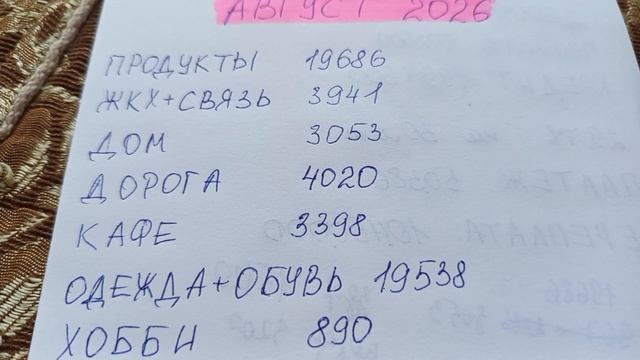 АВГУСТ 2026
ПРОДУКТЫ 19686
ЖКХ+СВЯЗЬ 3941
ДОМ 3053
ДОРОГА 4020
КАФЕ 3398
ОДЕЖДА+ОБУВЬ 19538
ХОББИ 890